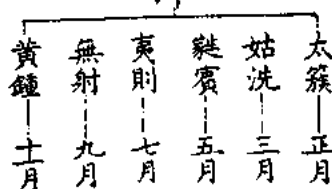 太簇—正月
姑洗—三月
蕤賓—五月
夷則—七月
無射—九月
黄鐘—十一月